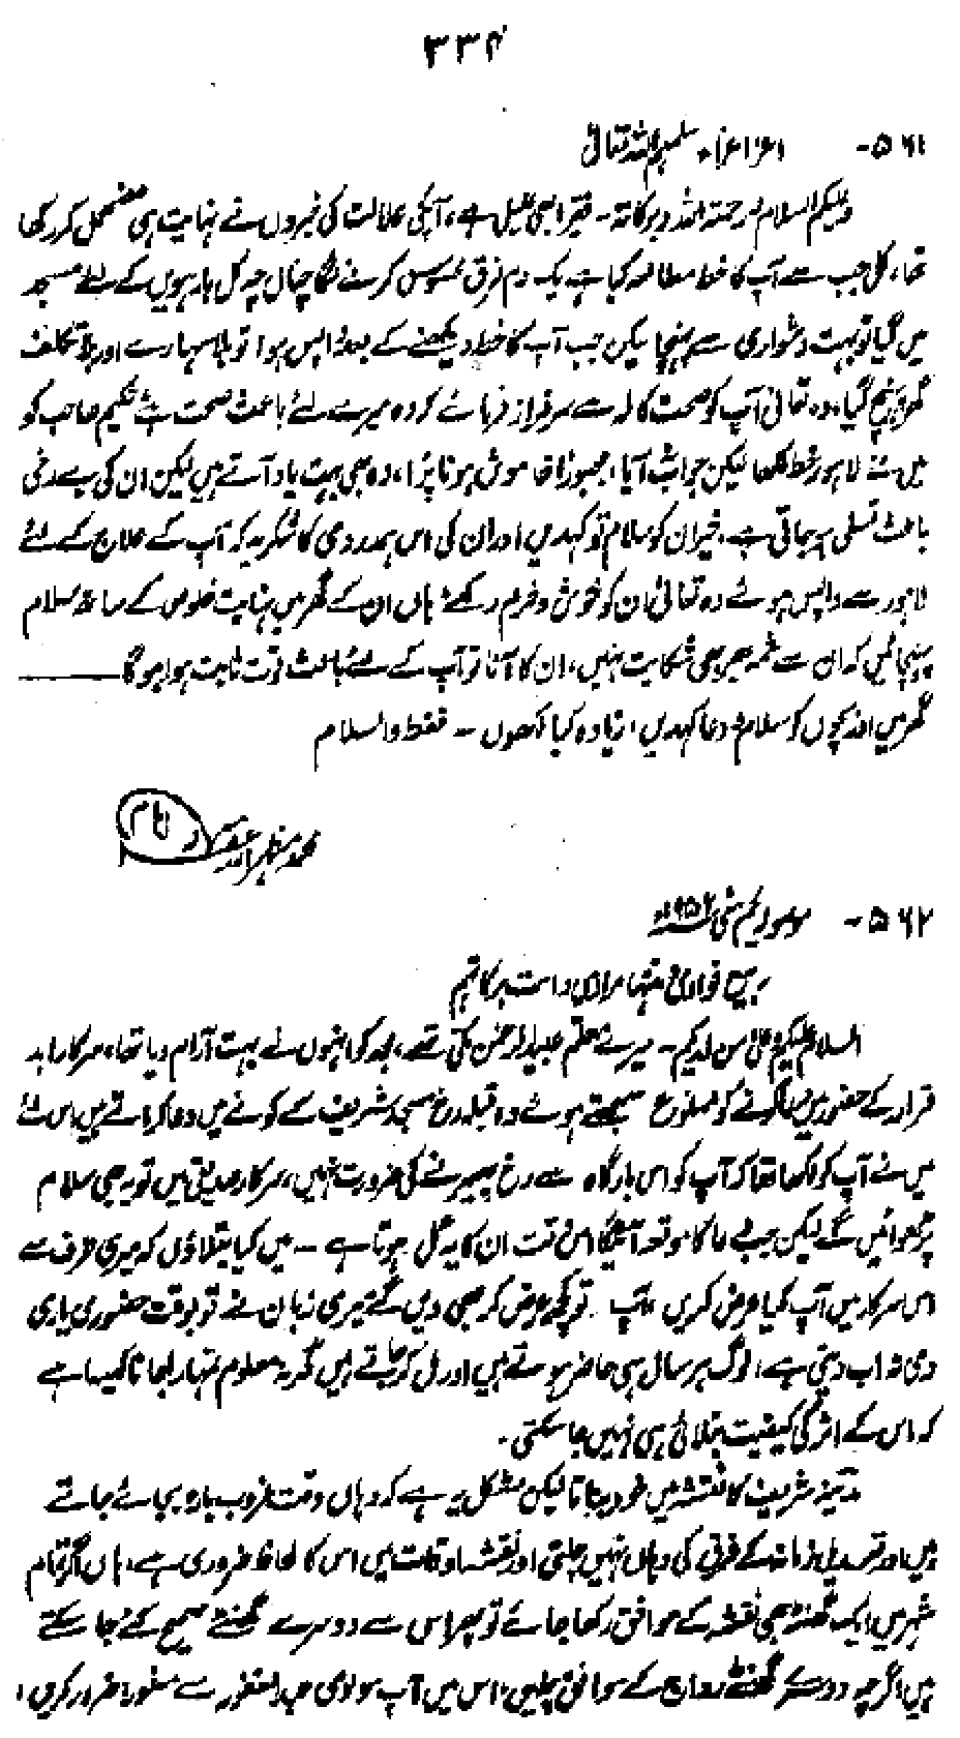 ۳۳۴
۵۶۱ - سلمہم اللہ تعالیٰ
وعلیکم السلام ورحمۃ اللہ وبرکاتہ - فقیر ابھی علیل ہے، آپکی علالت کی خبروں نے نہایت ہی مضمحل کر رکھا
تھا، کل جب سے آپ کا خط مطالعہ کیا ہے یک دم فرق محسوس کرنے لگا چناں چہ کل بارہویں کے لئے مسجد
میں گیا تو بہت دشواری سے پہنچا لیکن جب آپ کا خط دیکھنے کے بعد واپس ہوا تو بلا سہارے اور بلا تکلف
گھر پہنچ گیا، وہ تعالیٰ آپ کو صحت کاملہ سے سرفراز فرمائے کہ وہ میرے لئے باعث صحت ہے حکیم صاحب کو
میں نے لاہور خط لکھا لیکن جواب نہ آیا، مجبوراً خاموش ہونا پڑا، وہ بھی بہت یاد آتے ہیں لیکن ان کی بے رخی
باعث تسلی ہو جاتی ہے، خیر ان کو سلام تو کہدیں اور ان کی اس ہمدردی کا شکریہ کہ آپ کے علاج کے لئے
لاہور سے واپس ہوئے وہ تعالیٰ ان کو خوش و خرم رکھے، ہاں ان کے گھر میں نہایت خلوص کے ساتھ سلام
پہنچائیں کہ ان سے شمہ بھر بھی شکایت نہیں، ان کا آنا تو آپ کے لئے باعث قوت ثابت ہوا ہوگا ــــــ
گھر میں اور بچوں کو سلام و دعا کہدیں، زیادہ کیا لکھوں - فقط والسلام
محمد مظہر اللہ
۵۶۲ - یکم مئی ۱۹۵۲ء
دامت برکاتہم
السلام علیکم وعلیٰ من لدیکم - میرے معلم عبدالرحمٰن مکی تھے، مجھ کو انہوں نے بہت آرام دیا تھا، سرکار ابد
قرار کے حضور میں کو ممنوع سمجھتے ہوئے وہ قبلہ رخ مسجد شریف کے کونے میں دعا کراتے ہیں اس لئے
میں نے آپ کو لکھا تھا کہ آپ کو اس بارگاہ سے رخ پھیرنے کی ضرورت نہیں، سرکار صدیقی میں تو یہ بھی سلام
پڑھوائیں گے لیکن جب دعا کا موقعہ آئیگا اس وقت ان کا یہ عمل ہوتا ہے - میں کیا بتلاؤں کہ میری طرف سے
اس سرکار میں آپ کیا عرض کریں، آپ تو کچھ عرض کر بھی دیں گے میری زبان نے تو بوقت حضوری یاری
دی نہ اب دیتی ہے، لوگ ہر سال ہی حاضر ہوتے ہیں اور مل کر جاتے ہیں مگر نہ معلوم تمہارا جانا کیسا ہے
کہ اس کے اثر کی کیفیت بتلائی ہی نہیں جا سکتی۔
مدینہ شریف کا نقشہ میں خود بناتا لیکن مشکل یہ ہے کہ وہاں وقت غروب بارہ بجائے جاتے
ہیں اور تبدیل زمانہ کے فرق کی وہاں نہیں چلتی اور نقشہ اوقات میں اس کا لحاظ ضروری ہے، ہاں اگر تمام
شہر میں ایک گھنٹہ بھی نقشہ کے موافق رکھا جائے تو پھر اس سے دوسرے گھنٹے صحیح کئے جا سکتے
ہیں اگرچہ دوسرے گھنٹے رواج کے موافق چلیں، اس میں آپ مولوی سے مشورہ ضرور کریں،